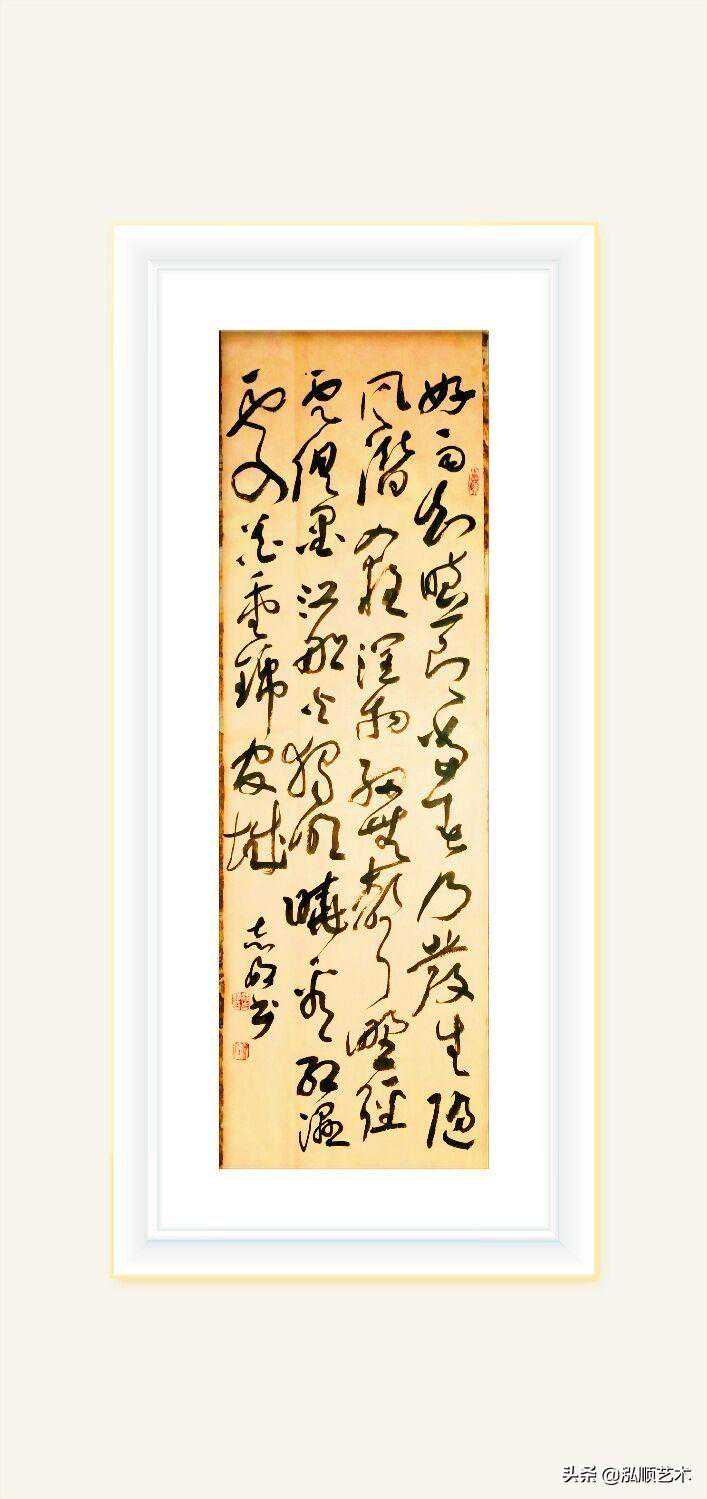 好雨知時節當春乃發生隨
風潛入夜潤物細無聲野徑
雲俱黑江船火獨明曉看紅濕
處花重錦官城
志 书
头条 @泓顺艺术